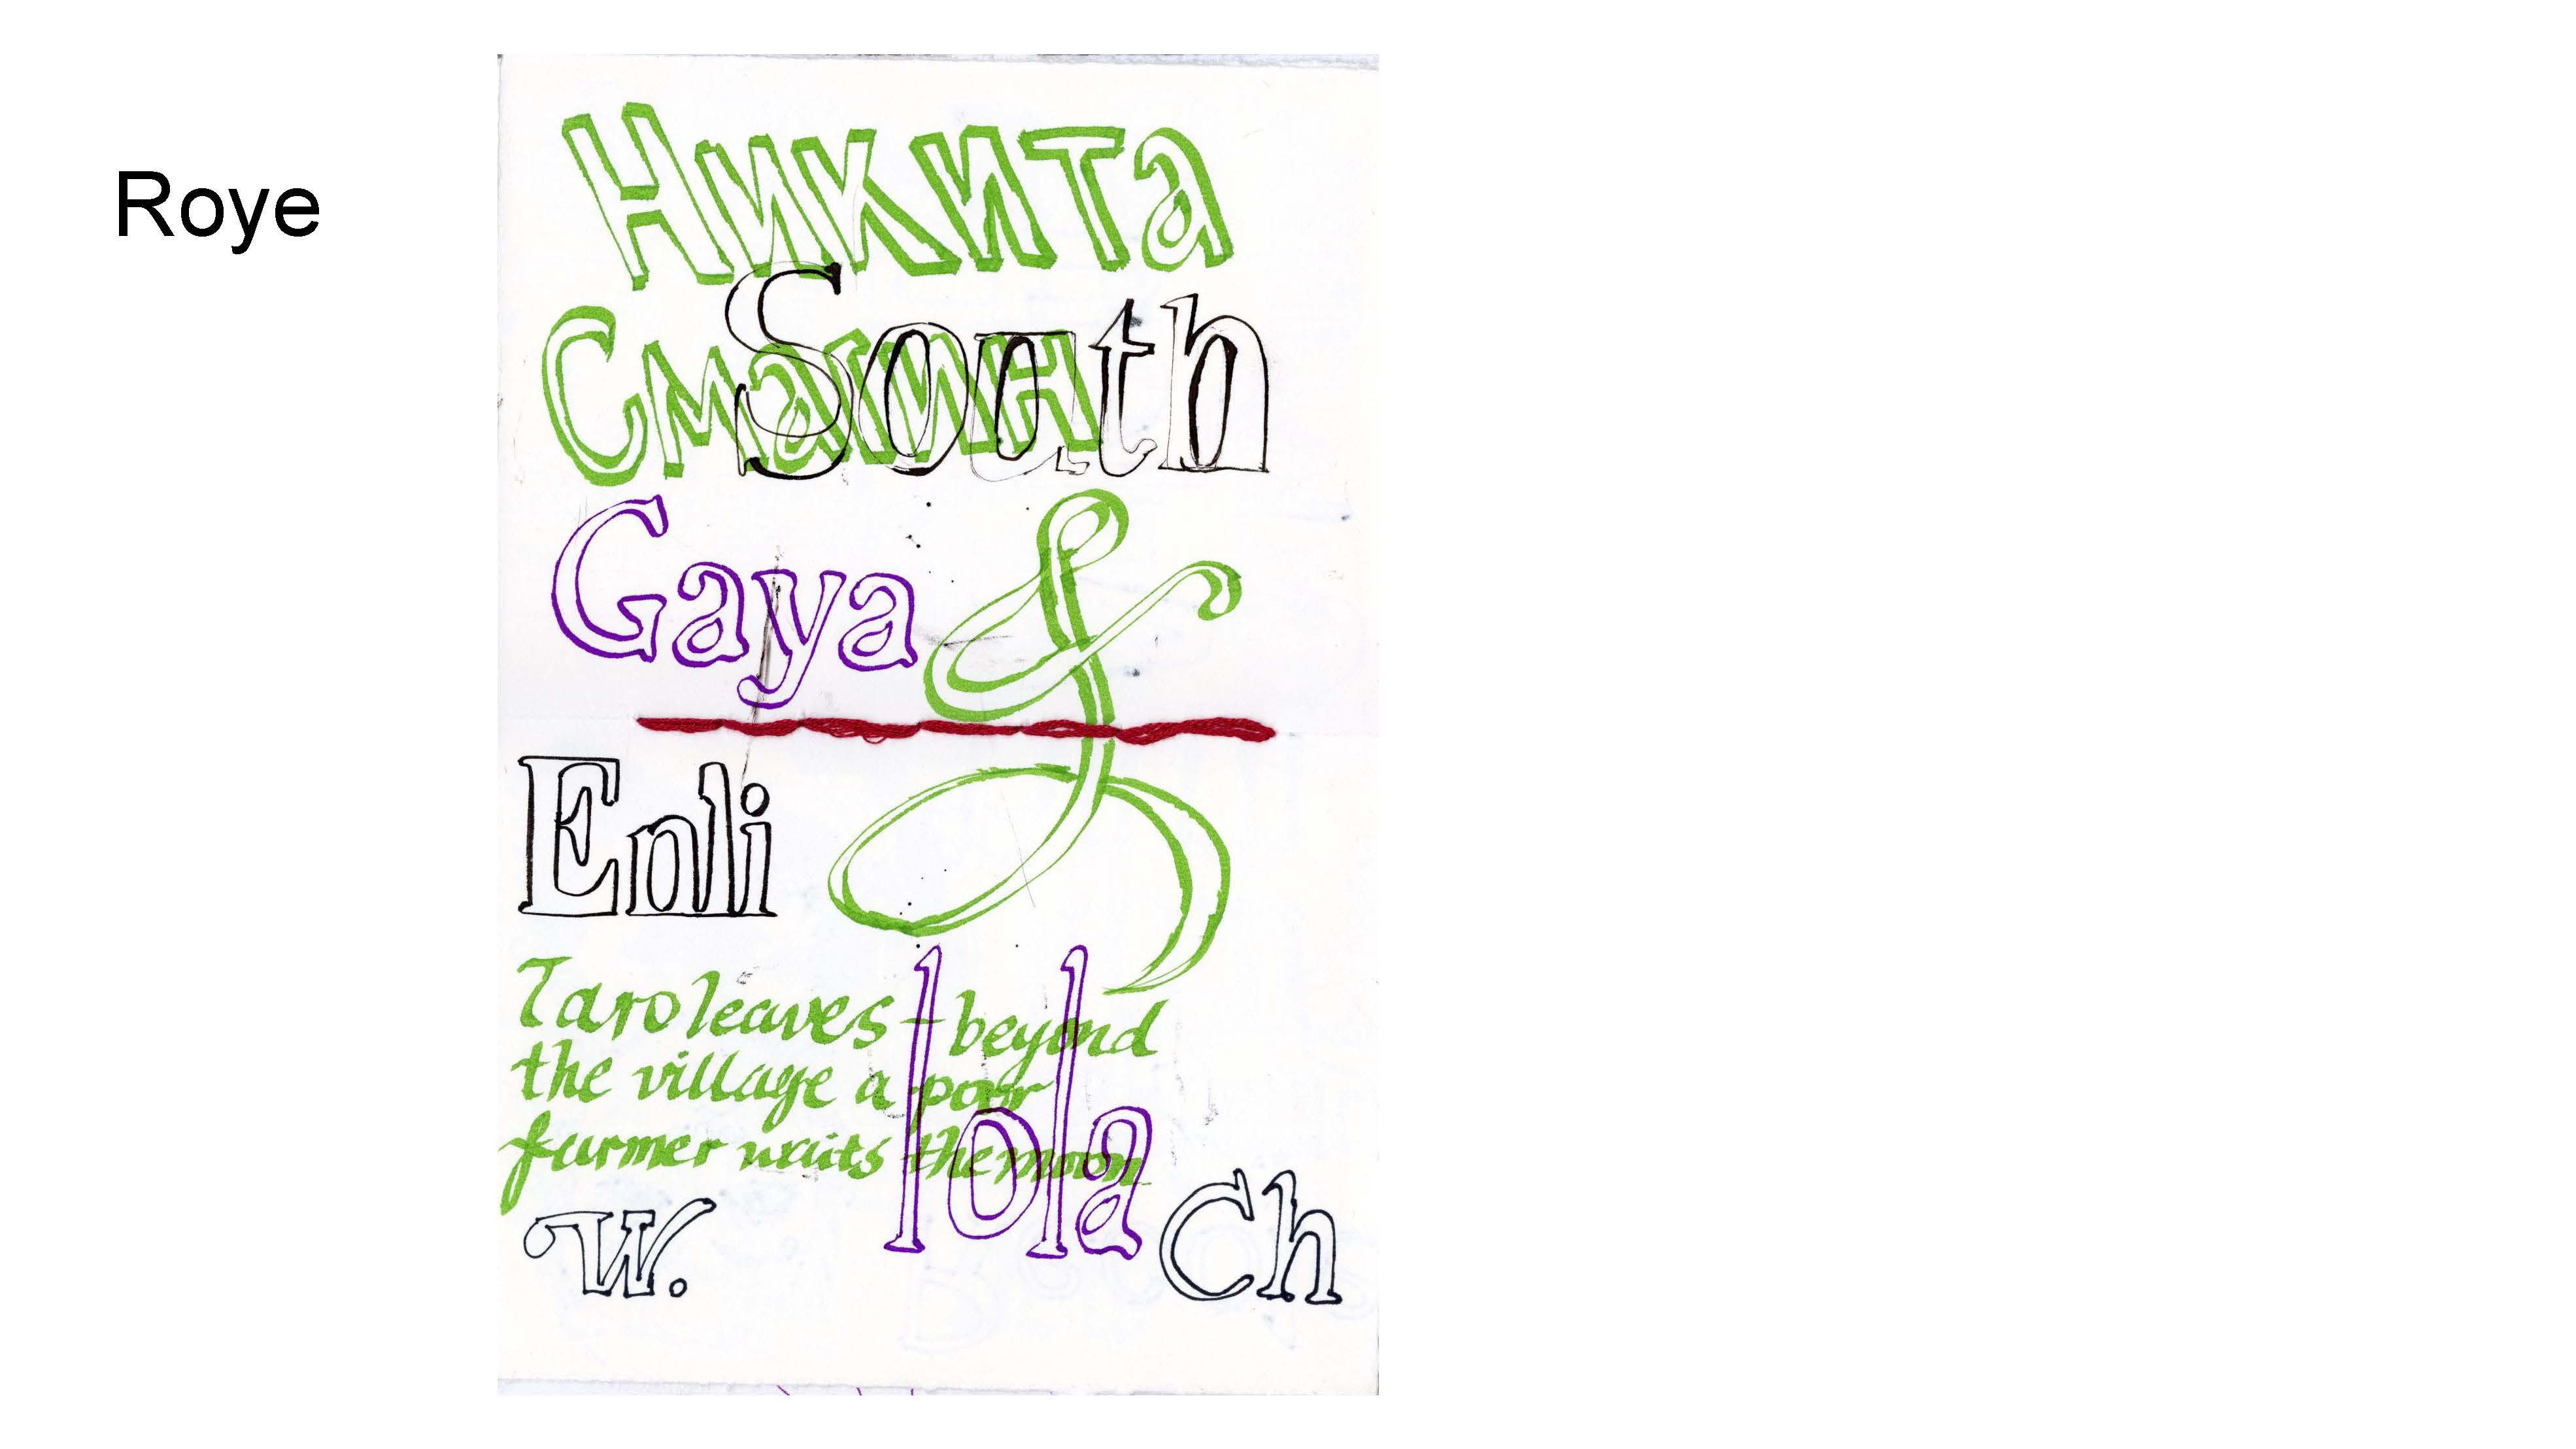 Roye
Никита
South
Смагин
Gaya &
Enli
Taro leaves – beyond
the village a poor
farmer waits the moon
lola
W.
Ch